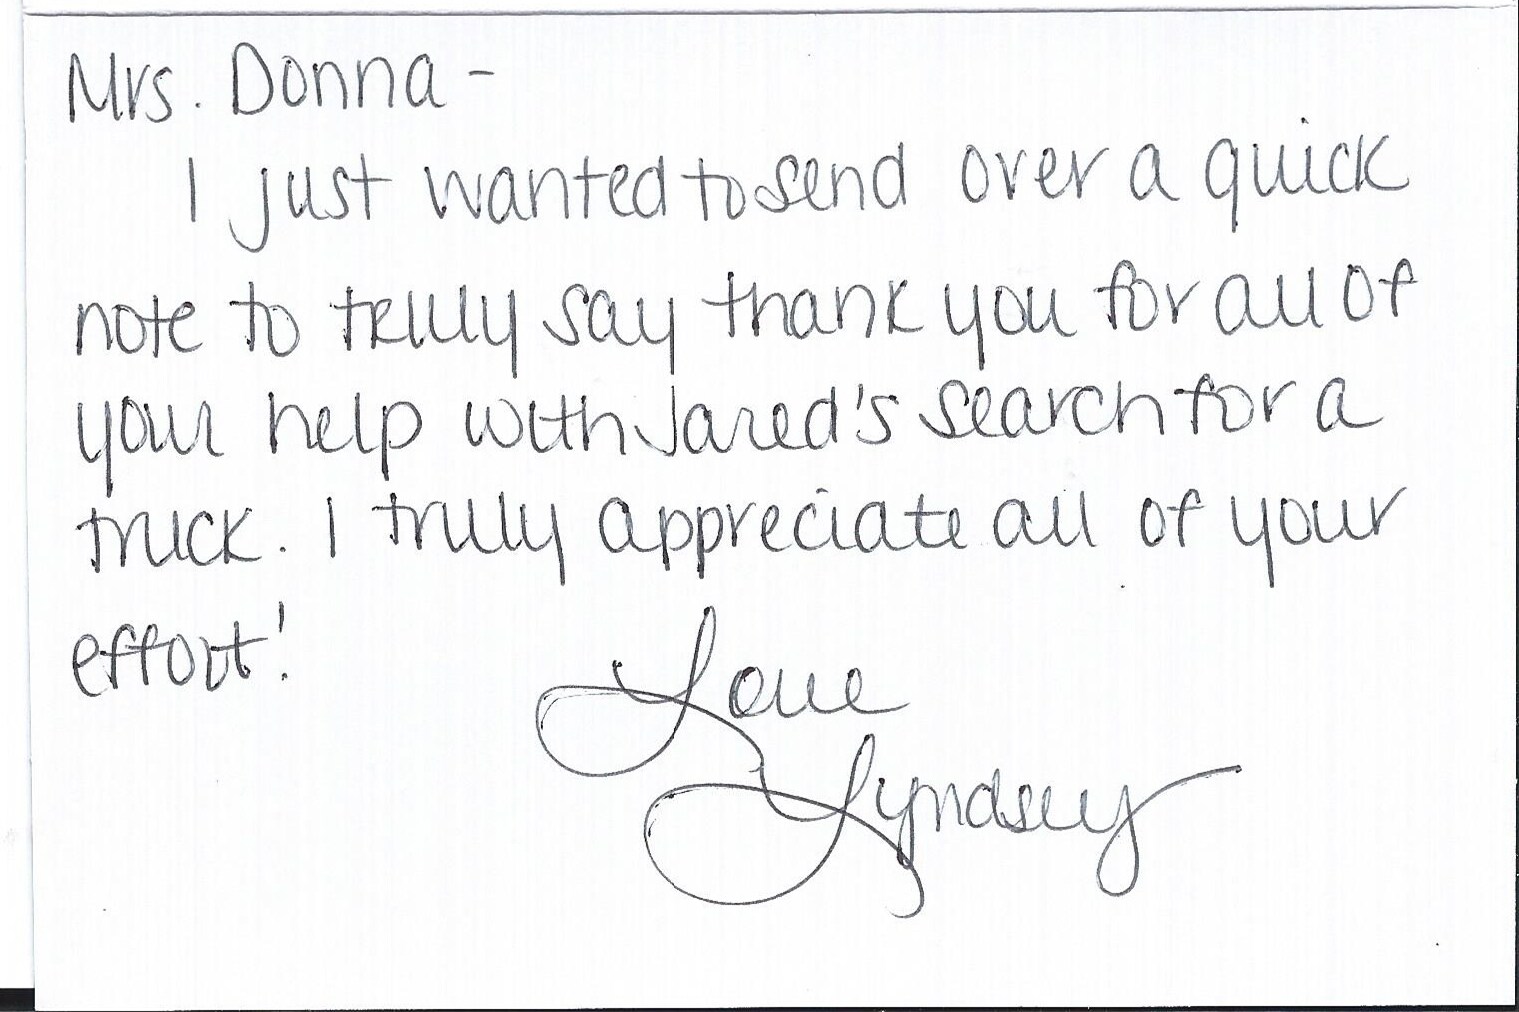 Mrs. Donna -
I just wanted to send over a quick
note to truly say thank you for all of
your help with Jared's search for a
truck. I truly appreciate all of your
effort!
Love
Lyndsey